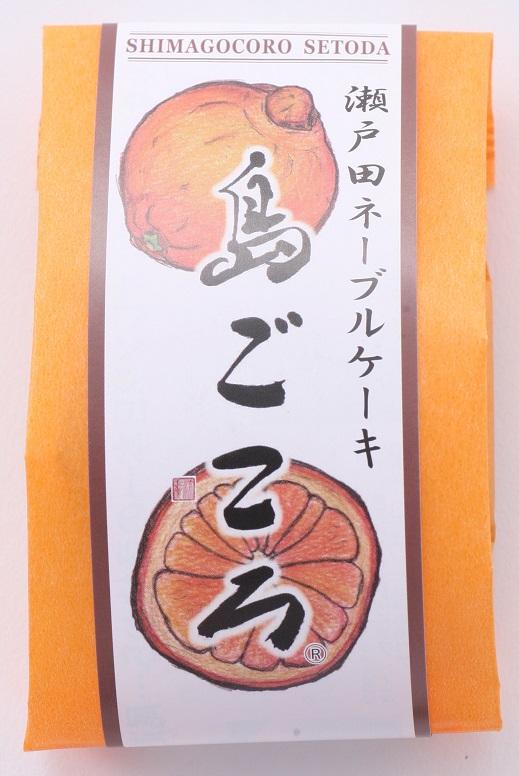 SHIMAGOCORO SETODA
瀬戸田ネーブルケーキ
島ごころ
®